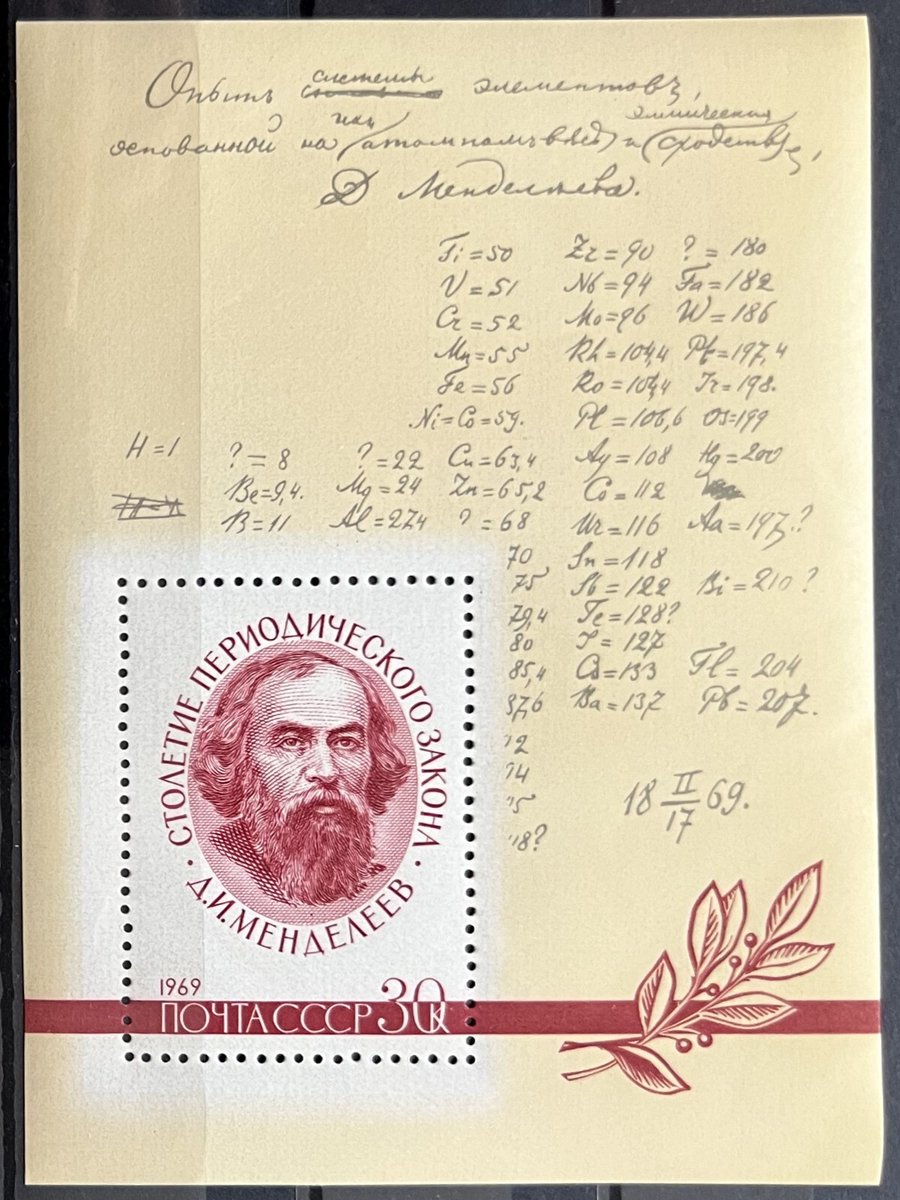 Опытъ системы элементовъ,
основанной на ихъ атомномъ вѣсѣ и химическомъ сходствѣ,
Д Менделѣева.
Ti=50 Zr=90 ?=180
V=51 Nb=94 Ta=182
Cr=52 Mo=96 W=186
Mn=55 Rh=104,4 Pt=197,4
Fe=56 Ro=104,4 Ir=198.
Ni=Co=59. Pl=106,6 Os=199
H=1 ?=8 ?=22 Cu=63,4 Ag=108 Hg=200
Be=9,4. Mg=24 Zn=65,2 Cd=112
B=11 Al=27,4 ?=68 Ur=116 Au=197?
70 Sn=118
75 Sb=122 Bi=210?
79,4 Te=128?
80 I=127
85,4 Cs=133 Tl=204
87,6 Ba=137 Pb=207.
18 II/17 69.
СТОЛЕТИЕ ПЕРИОДИЧЕСКОГО ЗАКОНА
· Д.И.МЕНДЕЛЕЕВ ·
1969
ПОЧТА СССР 30К